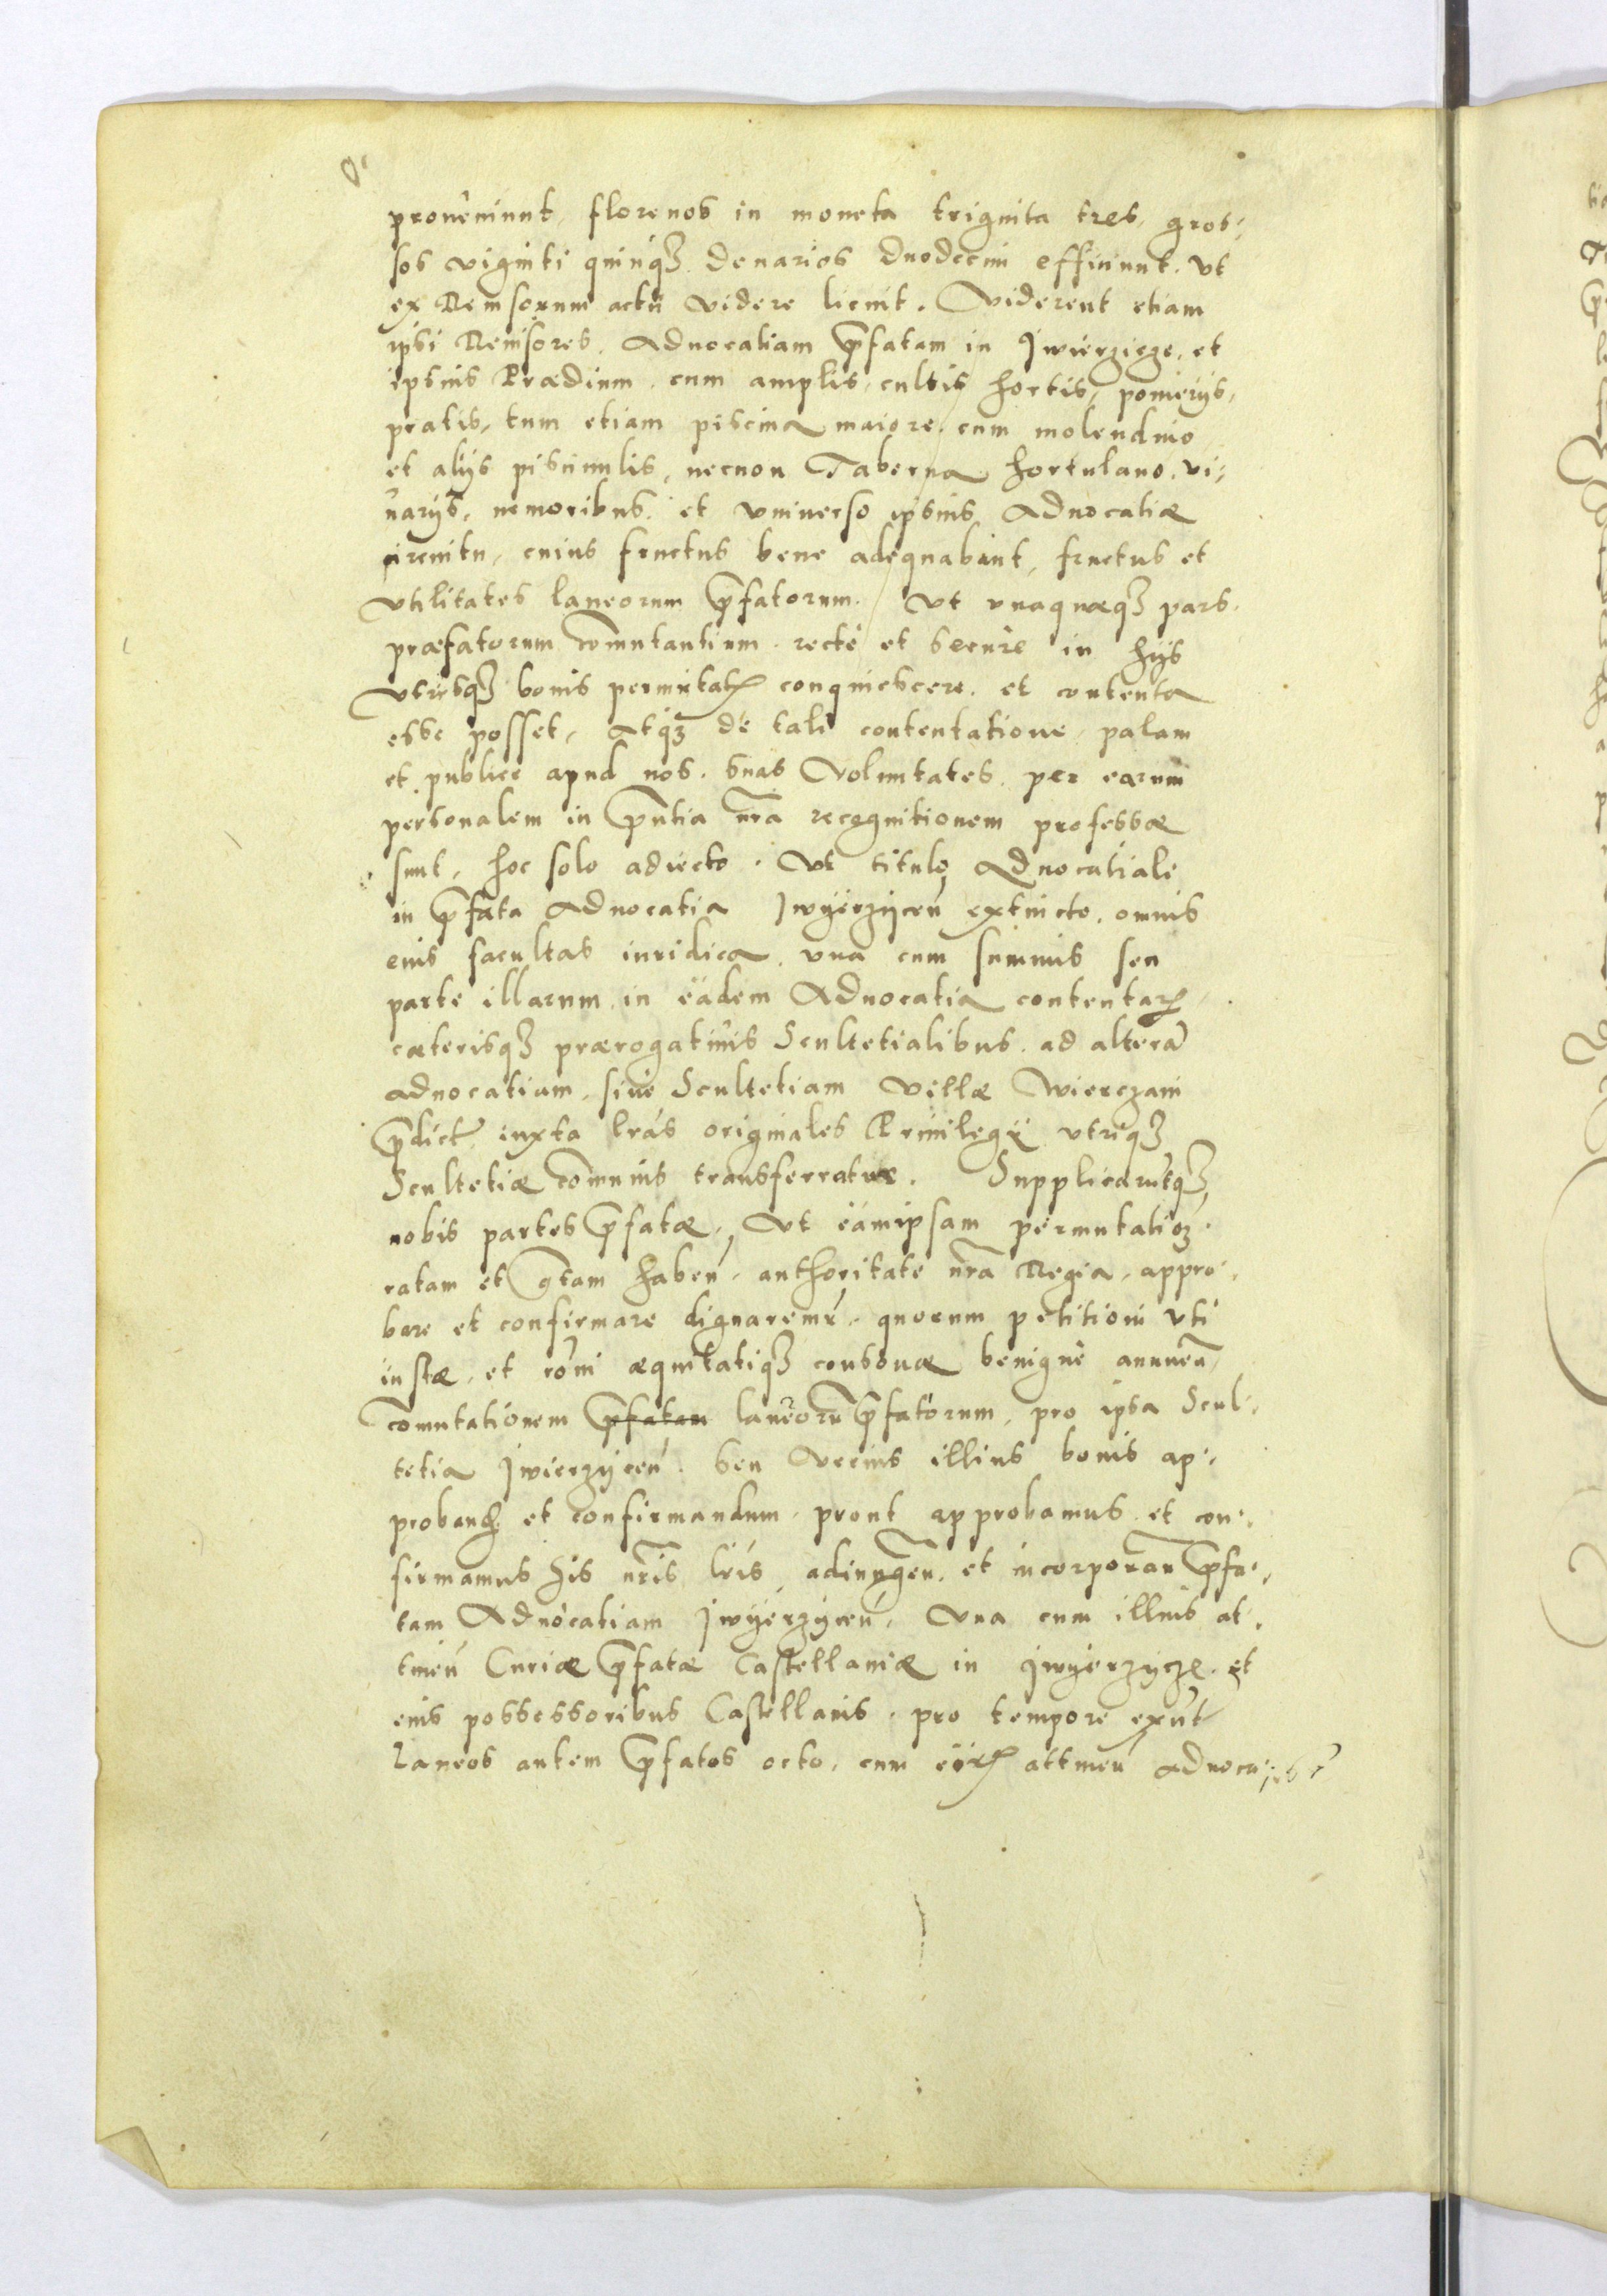 proueniunt, florenos in moneta triginta tres, gros-
sos viginti quinq3 denarios duodecim efficiunt. Vt
ex Reuisorum actū videre licuit. Viderent etiam
ipsi Reuisores, Aduocatiam p̄fatam in Jwierzicze, et
ipsius Prædium, cum amplis, cultis hortis, pomerijs,
pratis, tum etiam piscina maiore, cum molendino
et alijs piscinulis, necnon Taberna hortulano, vi-
narijs, nemoribus, et vniuerso ipsius Aduocatiæ
circuitu, cuius fructus bene adequabant, fructus et
vtilitates laneorum p̄fatorum. Vt vnaquæq3 pars
præfatorum com̄utantium recte et secure in hijs
vtrisq3 bonis permutatꝝ conquiescere, et contenta
esse posset, Atq3 de tali contentatione, palam
et publice apud nos, suas voluntates, per earum
personalem in p̄ntia nr̄a recognitionem professæ
sunt, hoc solo adiecto. Vt titulo Aduocatiali
in p̄fata Aduocatia Jwÿerzÿceń extincto, omnis
eius facultas iuridica, vna cum summis seu
parte illarum in eadem Aduocatia contentaꝝ
cæterisq3 prærogatiuis Scultetialibus, ad alterā
aduocatiam, siue Scultetiam villæ Wierczani
p̄dict̃ iuxta lr̄as originales Priuilegÿ vtriq3
Scultetiæ com̄unis transferratur. Supplicarūtq3
nobis partes p̄fatæ, Vt eamipsam permutatio3
ratam et gr̄tam habeń, authoritate nr̄a Regia, appro-
bare et confirmare dignaremr̃, quorum petitioni vti
iustæ, et rōni æquitatiq3 consonæ benigne annueń,
com̄utationem p̄fatam laneorū p̄fatorum, pro ipsa Scul-
tetia Jwierzÿceń. seu verius illius bonis ap-
proband̃ et confirmandum, prout approbamus et con-
firmamus his nr̄is lr̄is, adiungeń. et incorporań p̄fa-
tam Aduocatiam Jwÿerzÿceń, Vna cum illius at-
tineń Curiæ p̄fatæ Castellaniæ in Jwÿerzÿcze. et
eius possessoribus Castellanis, pro tempore exn̄t
Laneos autem p̄fatos octo, cum eoꝝ attineń